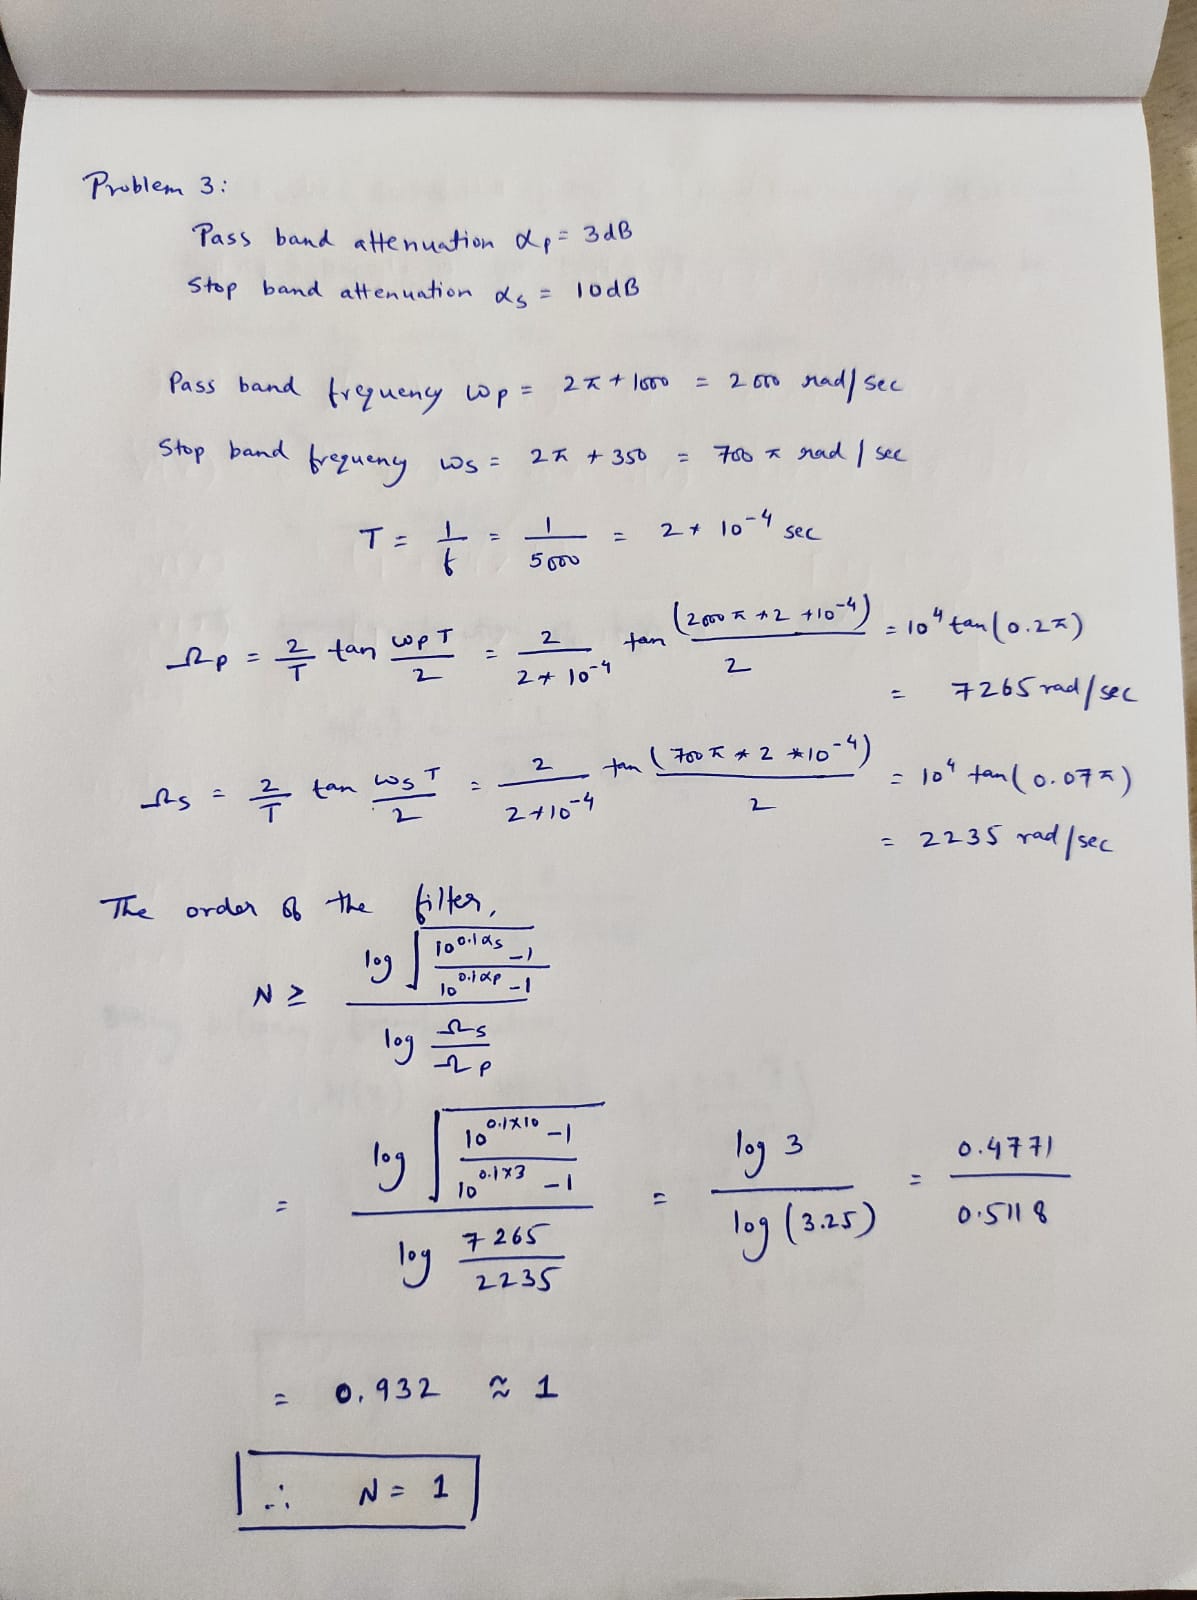 Problem 3:
Pass band attenuation αp = 3dB
Stop band attenuation αs = 10dB
Pass band frequency ωp = 2π * 1000 = 2000 rad/sec
Stop band frequeny ωs = 2π * 350 = 700 π rad / sec
T = 1/f = 1/5000 = 2 * 10^-4 sec
Ωp = 2/T tan ωpT/2 = 2/(2 * 10^-4) tan (2000 π * 2 * 10^-4)/2 = 10^4 tan(0.2π)
= 7265 rad/sec
Ωs = 2/T tan ωsT/2 = 2/(2 * 10^-4) tan (700 π * 2 * 10^-4)/2 = 10^4 tan(0.07π)
= 2235 rad/sec
The order of the filter,
N ≥ log √((10^0.1αs - 1)/(10^0.1αp - 1)) / log Ωs/Ωp
= log √((10^0.1×10 - 1)/(10^0.1×3 - 1)) / log 7265/2235 = log 3 / log (3.25) = 0.4771/0.5118
= 0.932 ≈ 1
∴ N = 1